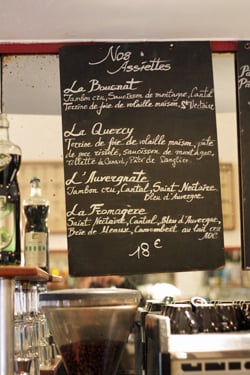 Nos
Assiettes
La Bougnat
Jambon cru, Saucisson de montagne, Cantal
Terrine de foie de volaille maison, St Nectaire
La Quercy
Terrine de foie de volaille maison, pâté
de porc rissolé, saucisson de montagne,
Rillette de Canard, Pâté de Sanglier
L'Auvergnate
Jambon cru, Cantal, Saint-Nectaire,
Bleu d'Auvergne
La Fromagère
Saint-Nectaire, Cantal, Bleu d'Auvergne,
Brie de Meaux, Camembert au lait cru
AOC
18 €